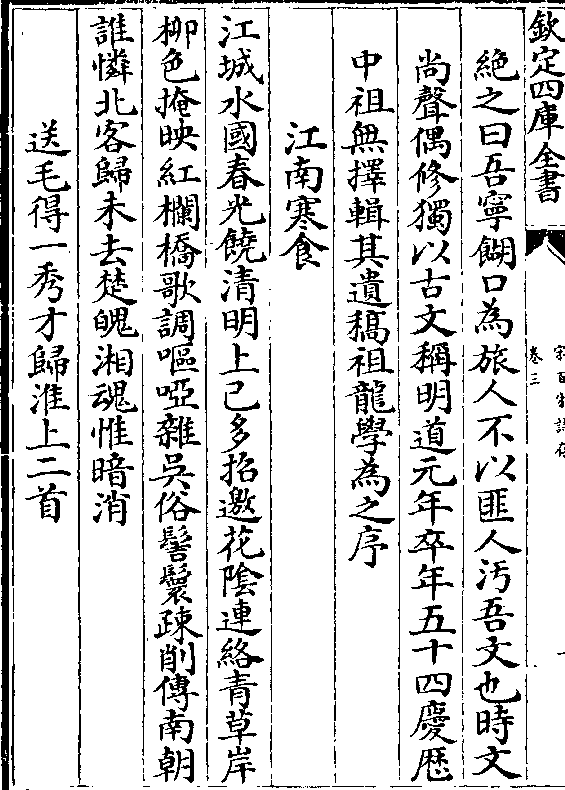 欽定四庫全書
宋百家詩存
卷三
絶之曰吾寧餬口為旅人不以匪人汚吾文也時文
尚聲偶修獨以古文稱明道元年卒年五十四慶厯
中祖無擇輯其遺稿祖龍學為之序
江南寒食
江城水國春光饒清明上已多招邀花陰連絡青草岸
柳色掩映紅欄橋歌調嘔啞雜吳俗髻鬟疎削傳南朝
誰憐北客歸未去楚魄湘魂惟暗消
送毛得一秀才歸淮上二首